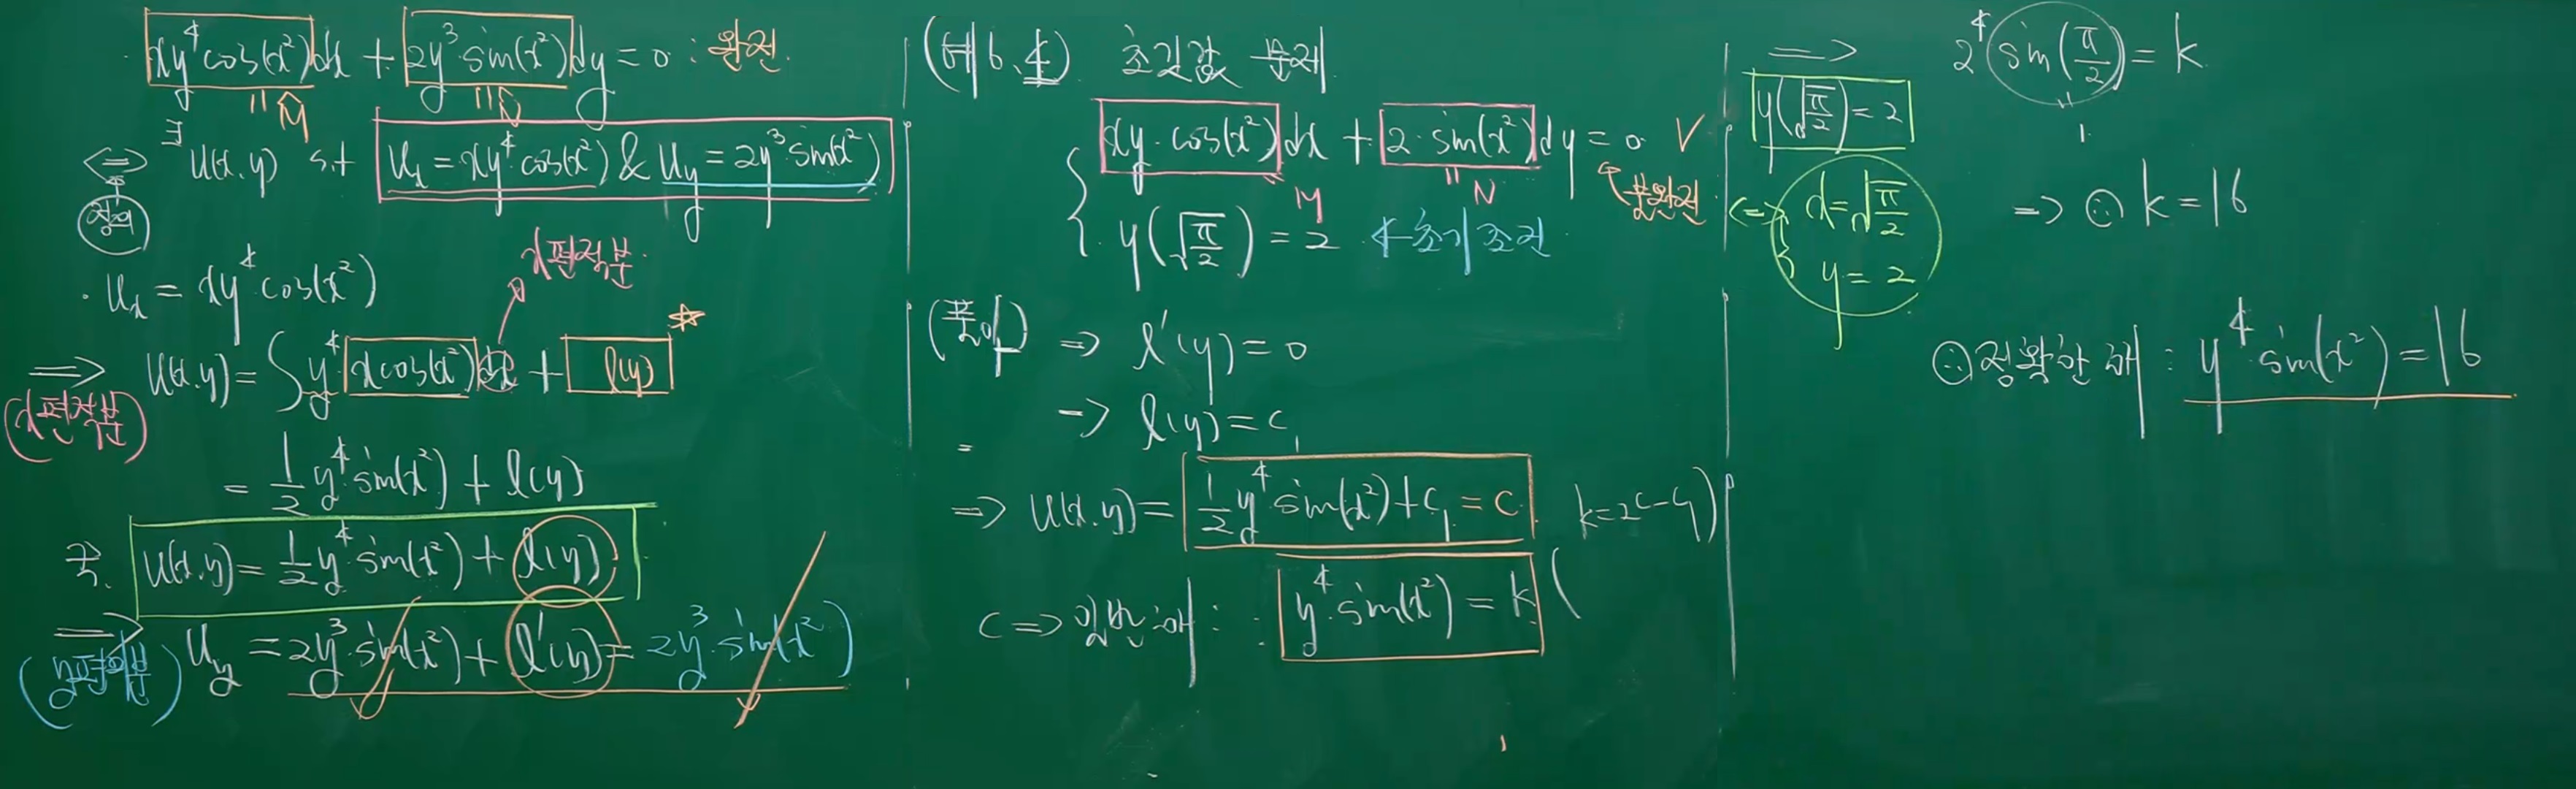 xy⁴cos(x²)dx + 2y³·sin(x²)dy = 0 : 완전.
" M̃ " Ñ
⇔ ∃u(x,y) s.t u_x = xy⁴·cos(x²) & u_y = 2y³·sin(x²)
정의
· u_x = xy⁴·cos(x²)
x편적분
⇒ u(x,y) = ∫y⁴·xcos(x²)dx + l(y) ☆
(x편적분)
= 1/2 y⁴·sin(x²) + l(y)
즉. u(x,y) = 1/2 y⁴·sin(x²) + l(y)
⇒ u_y = 2y³·sin(x²) + l'(y) = 2y³·sin(x²)
(y편미분)
(예 6.4) 초깃값 문제
xy·cos(x²)dx + 2·sin(x²)dy = 0 ✓
" M " N 불완전
y(√(π/2)) = 2 ← 초기조건
(풀이) ⇒ l'(y) = 0
⇒ l(y) = c₁
=
⇒ u(x,y) = 1/2 y⁴·sin(x²) + c₁ = c k=2(c-c₁)
⇒ 일반해 : y⁴·sin(x²) = k (
⇒ 2⁴ sin(π/2) = k
y(√(π/2)) = 2
" 1
⇔ x = √(π/2)
y = 2
⇒ ∴ k = 16
∴ 정확한 해 : y⁴·sin(x²) = 16